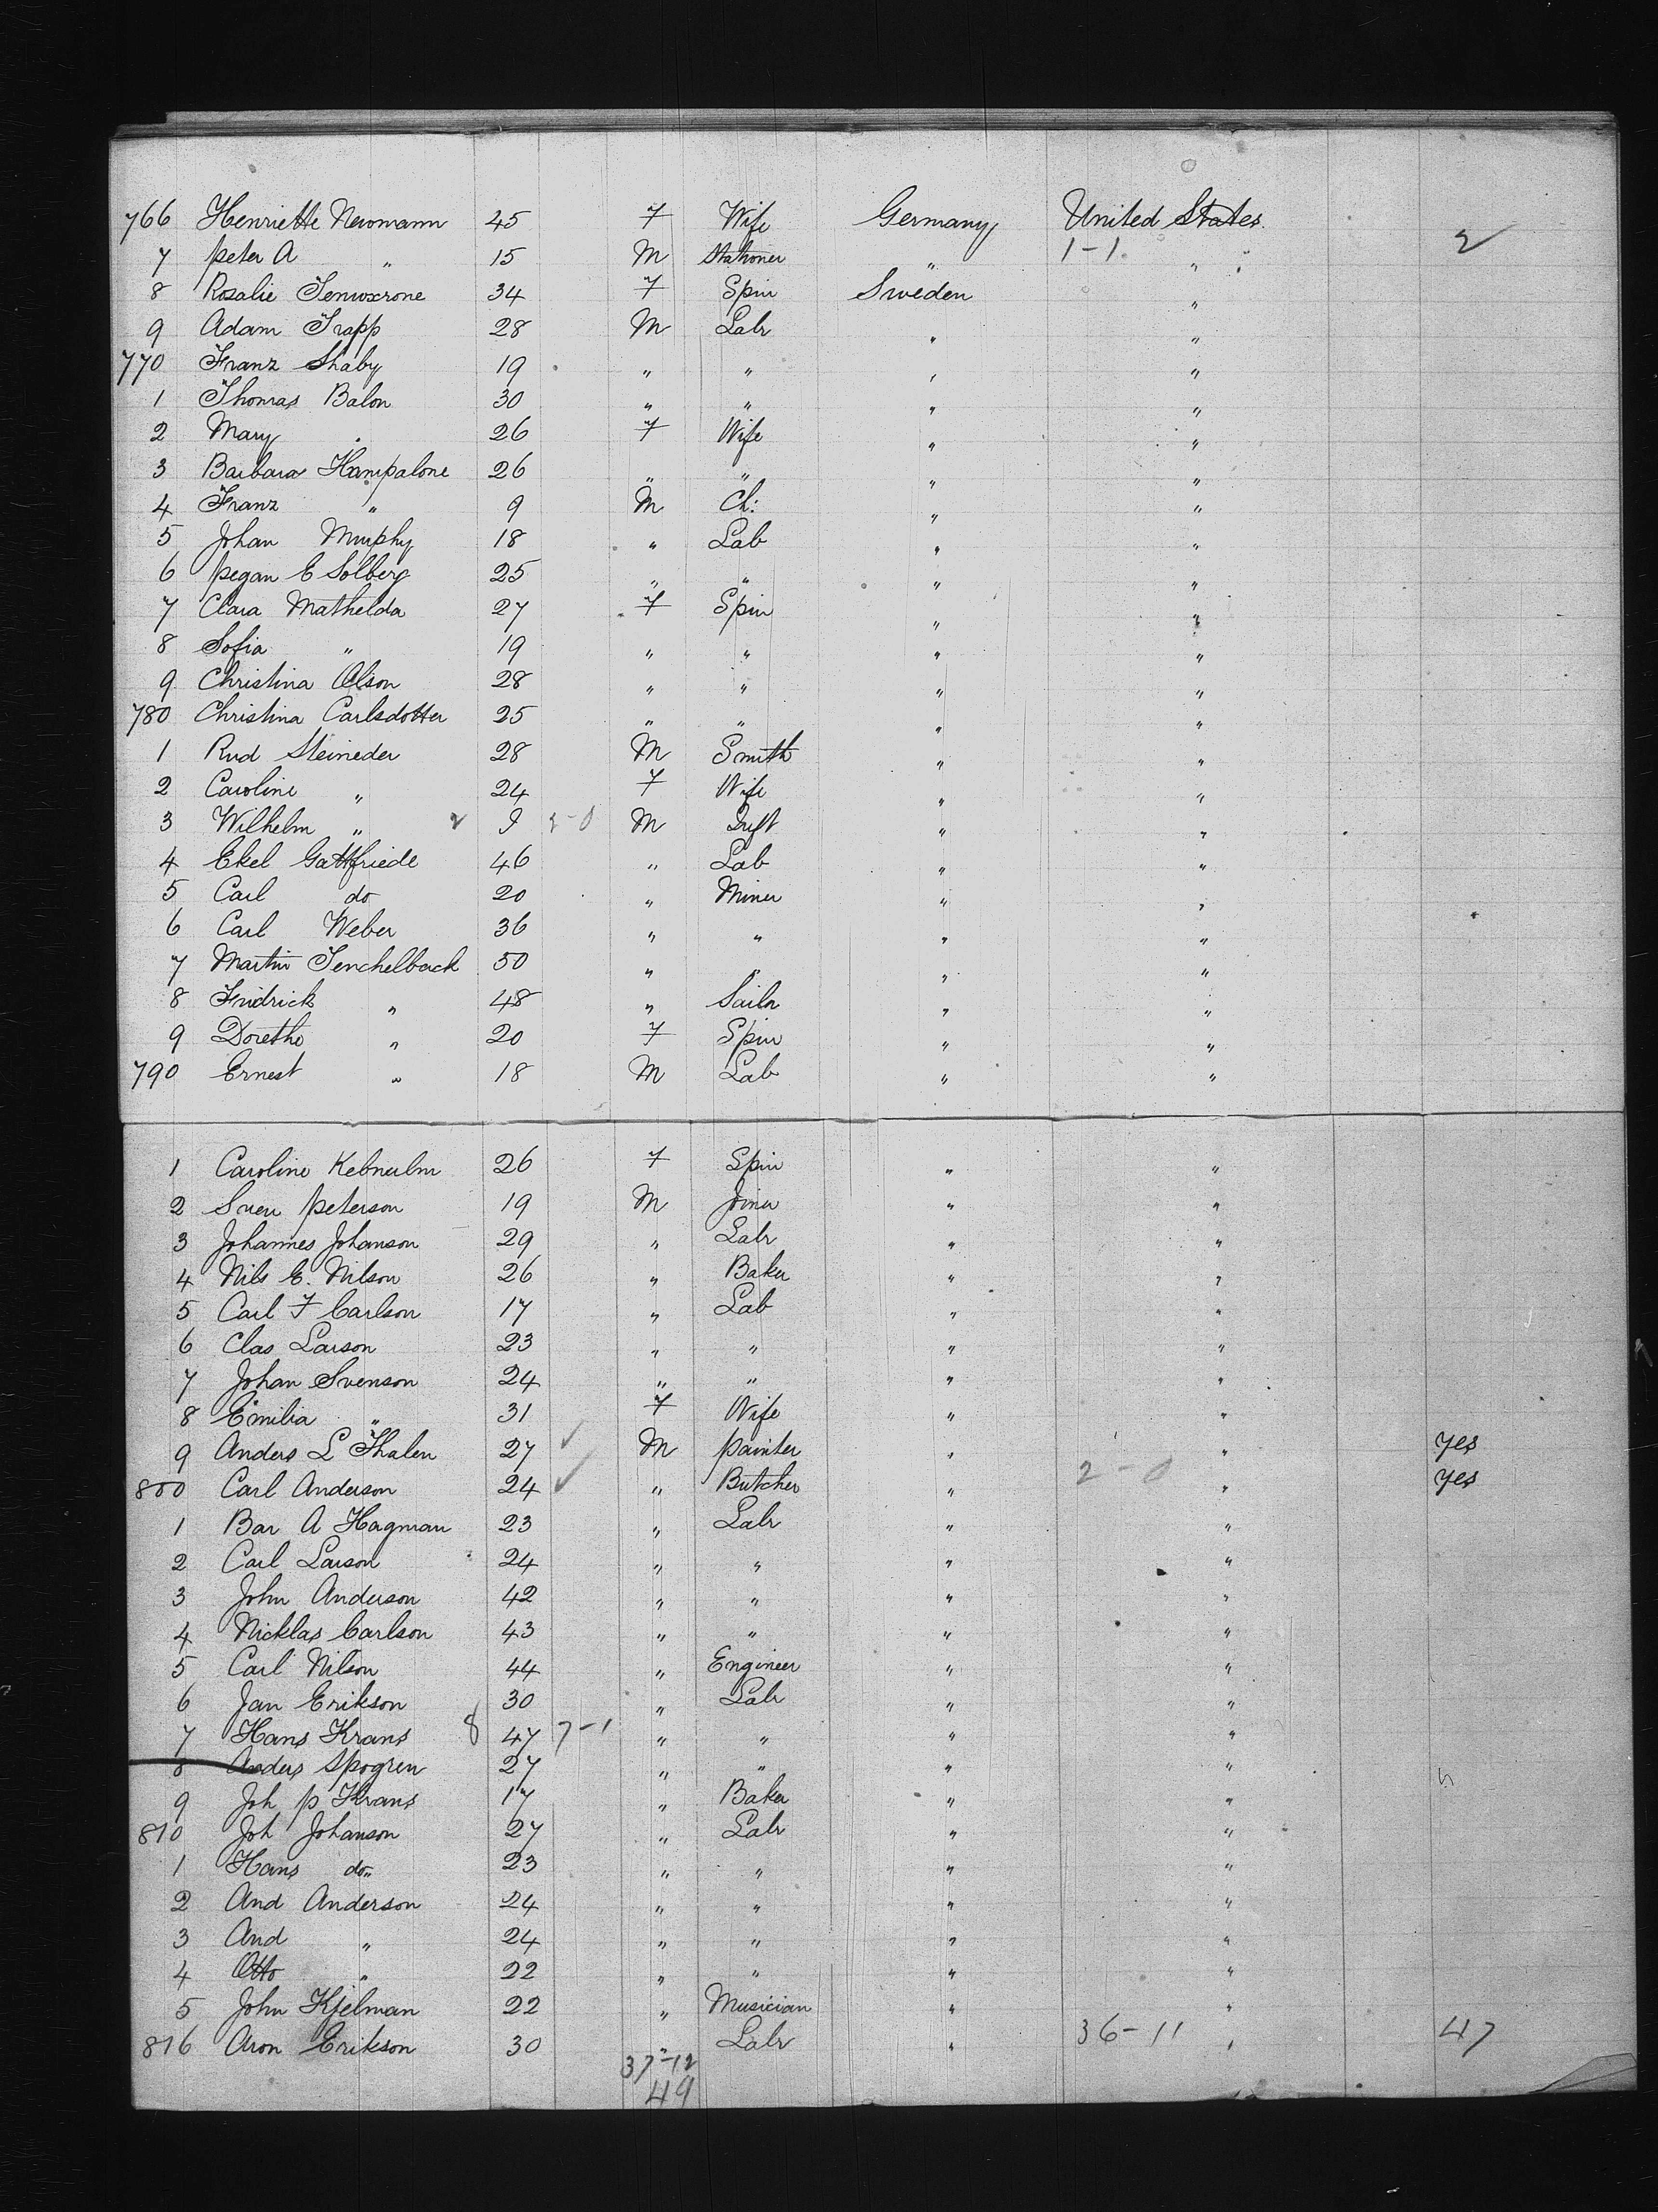 766 Henriette Newmann 45 F Wife Germany United States.
7 Peter A " 15 M Stationer " 1-1. " 2
8 Rosalie 34 F Spin Sweden "
9 Adam Trapp 28 M Labr " "
770 Franz Shaby 19 " " " "
1 Thomas Balon 30 " " " "
2 Mary " 26 F Wife " "
3 Barbara Hampalone 26 " " " "
4 Franz " 9 M Ch: " "
5 Johan Murphy 18 " Lab " "
6 Pegan E Solberg 25 " " " "
7 Clara Mathelda 27 F Spin " "
8 Sofia " 19 " " " "
9 Christina Olson 28 " " " "
780 Christina Carlsdotter 25 " " " "
1 Rud Steineder 28 M Smith " "
2 Caroline " 24 F Wife " "
3 Wilhelm " M " "
4 Ekel Gattfriede 46 " Lab " "
5 Carl do 20 " Miner " "
6 Carl Weber 36 " " " "
7 Martin Tenchelback 50 " " " "
8 Fridrick " 48 " Sailr " "
9 Dorethe " 20 F Spin " "
790 Ernest " 18 M Lab " "
1 Caroline 26 F Spin " "
2 Sven Peterson 19 M Joiner " "
3 Johannes Johanson 29 " Labr " "
4 Nils E. Nilson 26 " Baker " "
5 Carl F Carlson 17 " Lab " "
6 Clas Larson 23 " " " "
7 Johan Svenson 24 " " " "
8 Emilia " 31 F Wife " "
9 Anders L Thalen 27 M Painter " " yes
800 Carl Anderson 24 " Butcher " 2-0 " yes
1 Bar A Hagman 23 " Labr " "
2 Carl Larson 24 " " " "
3 John Anderson 42 " " " "
4 Nicklas Carlson 43 " " " "
5 Carl Nilson 44 " Engineer " "
6 Jan Erikson 30 " Labr " "
7 Hans Krans 8 47 7-1 " " " "
8 Anders Spogren 27 " " " "
9 Joh P Krans 17 " Baker " "
810 Joh Johanson 27 " Labr " "
1 Hans do " 23 " " " "
2 And Anderson 24 " " " "
3 And " 24 " " " "
4 Otto " 22 " " " "
5 John Kjelman 22 " Musician " "
816 Aron Erikson 30 " Labr " 36-11 " 47
37-12
49